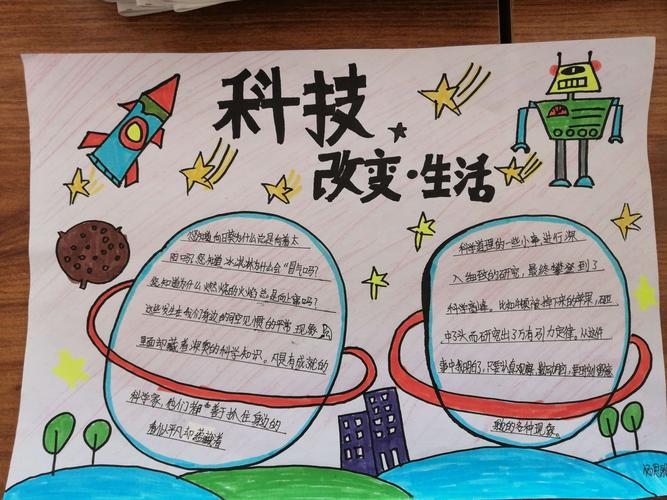 科技
改变·生活
您知道向日葵为什么总是向着太
阳吗?您知道冰淇淋为什么会“冒气吗?
您知道为什么燃烧的火焰总是向上窜吗?
这些发生在我们身边的司空见惯的平常现象
里面却藏着深奥的科学知识。凡是有成就的
科学家,他们都“善于抓住身边的
看似平凡却蕴藏着
科学道理的一些小事进行深
入细致的研究,最终攀登到了
科学高峰。比如牛顿被掉下来的苹果,砸
中了头而研究出了万有引力定律。从这件
事中表明的了,只要认真观察,勤动脑筋,去
身边的各种现象。